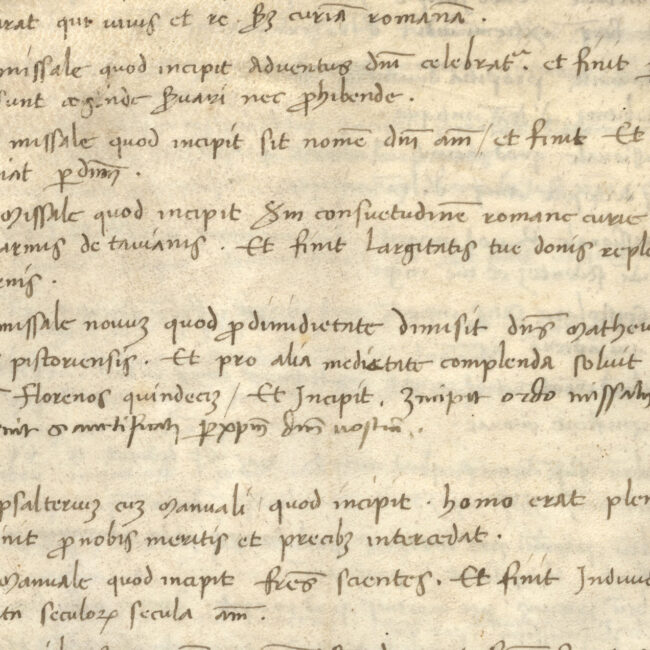 qui vivis et re. Sz curiā romanā.
missale quod incipit Adventus dni celebrat. et finit
sunt nec phibende.
missale quod incipit sit nomē dni am / et finit Et
iat p dnm.
Missale quod incipit Sm consuetudinē romane curie
armis de tavianis. Et finit largitatis tue donis reple
rnis.
missale novuz quod p dimidietate dimisit dns Matheu
pistoriensis. Et pro alia medietate complenda solvit
Florenos quindeciz / Et Incipit. Incipit ordo missal
nit sanctificati p xpm dnm nostrū.
psalteriuz cuz Manuali / quod incipit. homo erat plen
nit p nobis meritis et precibz intercedat.
Manuale quod incipit frēs scientes. Et finit Induu
seculorꝝ secula am.